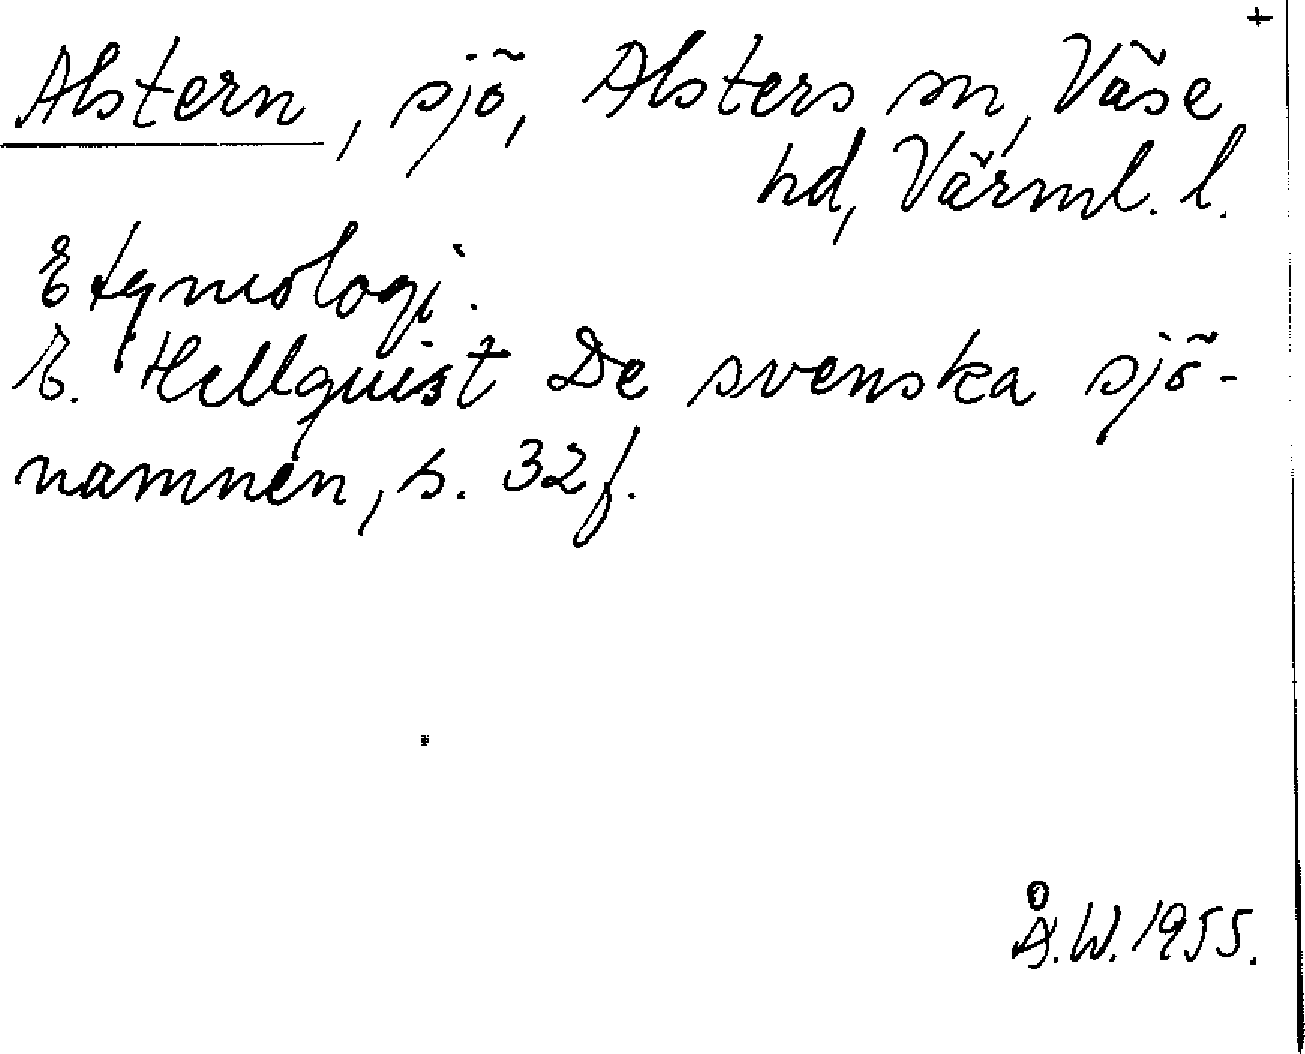 +
Alstern, sjö, Alsters sn, Väse
hd, Värml. l.
Etymologi.
E. Hellquist De svenska sjö-
namnen, s. 32 f.
Å.W. 1955.